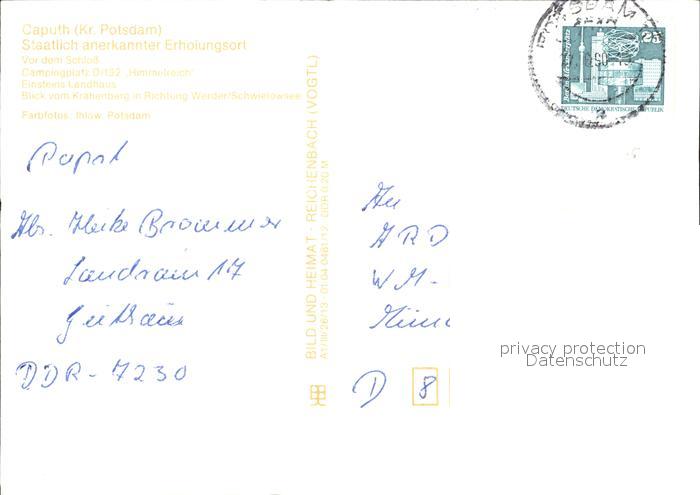 Caputh (Kr. Potsdam)
Staatlich anerkannter Erholungsort
Vor dem Schloß
Campingplatz D/132 „Himmelreich"
Einsteins Landhaus
Blick vom Krähenberg in Richtung Werder/Schwielowsee
Farbfotos: Ihlow, Potsdam
Papst
Abs. Heike Brommer
Landrain 17
Geithain
DDR - 7230
BILD UND HEIMAT · REICHENBACH (VOGTL)
A1/III/26/13 · 01 04 0461/12 DDR 0,20 M
POTSDAM
25
DEUTSCHE DEMOKRATISCHE REPUBLIK
An
ARD
WM-
D 8
privacy protection
Datenschutz